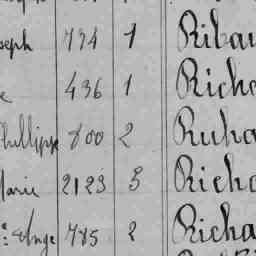 seph 734 1 Ribau
e 436 1 Richa
Phillippe 800 2 Richa
Marie 2123 3 Richa
Ange 785 2 Richa